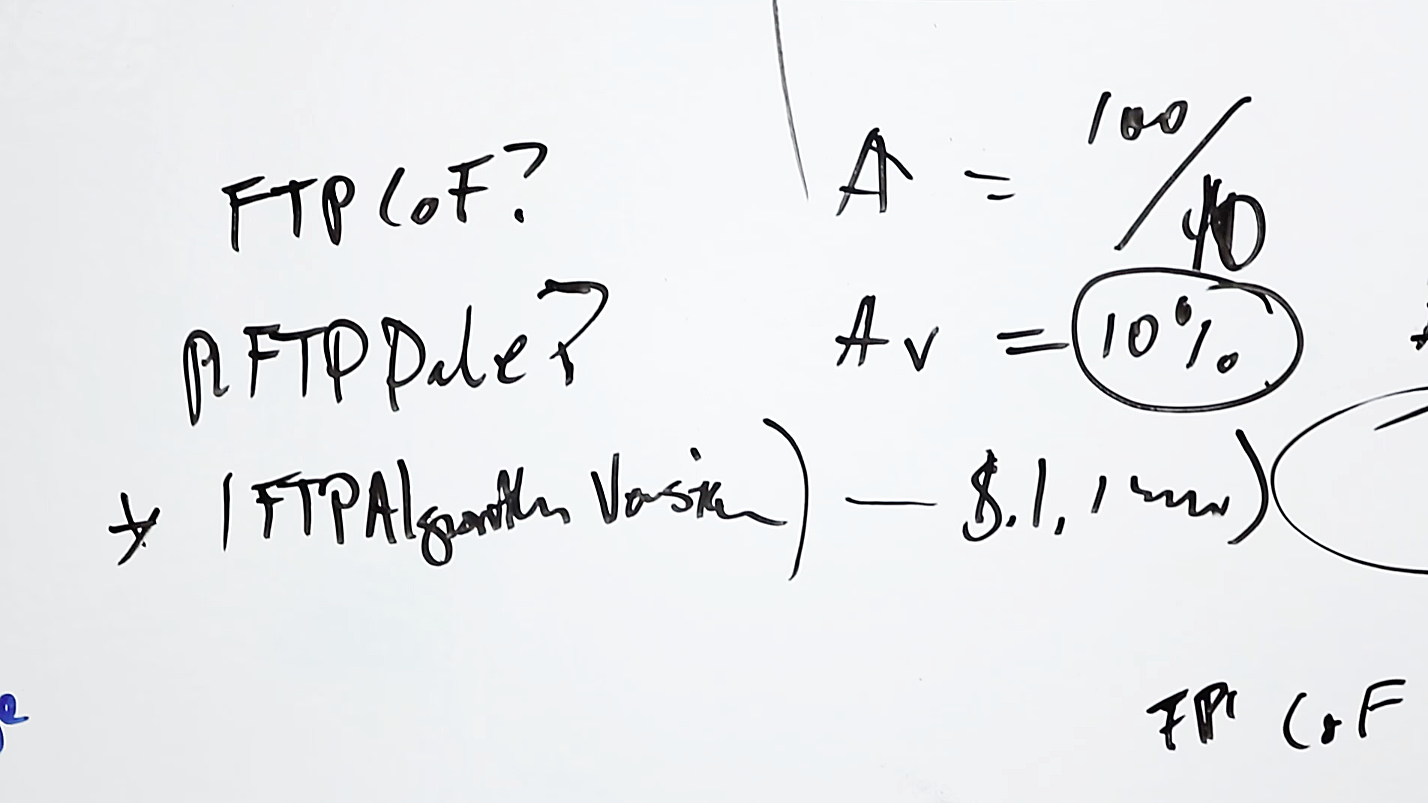 FTP CoF?
FTP Date?
* FTP Algorithm Version)
A = 100/40
Av = 10%
FTP CoF